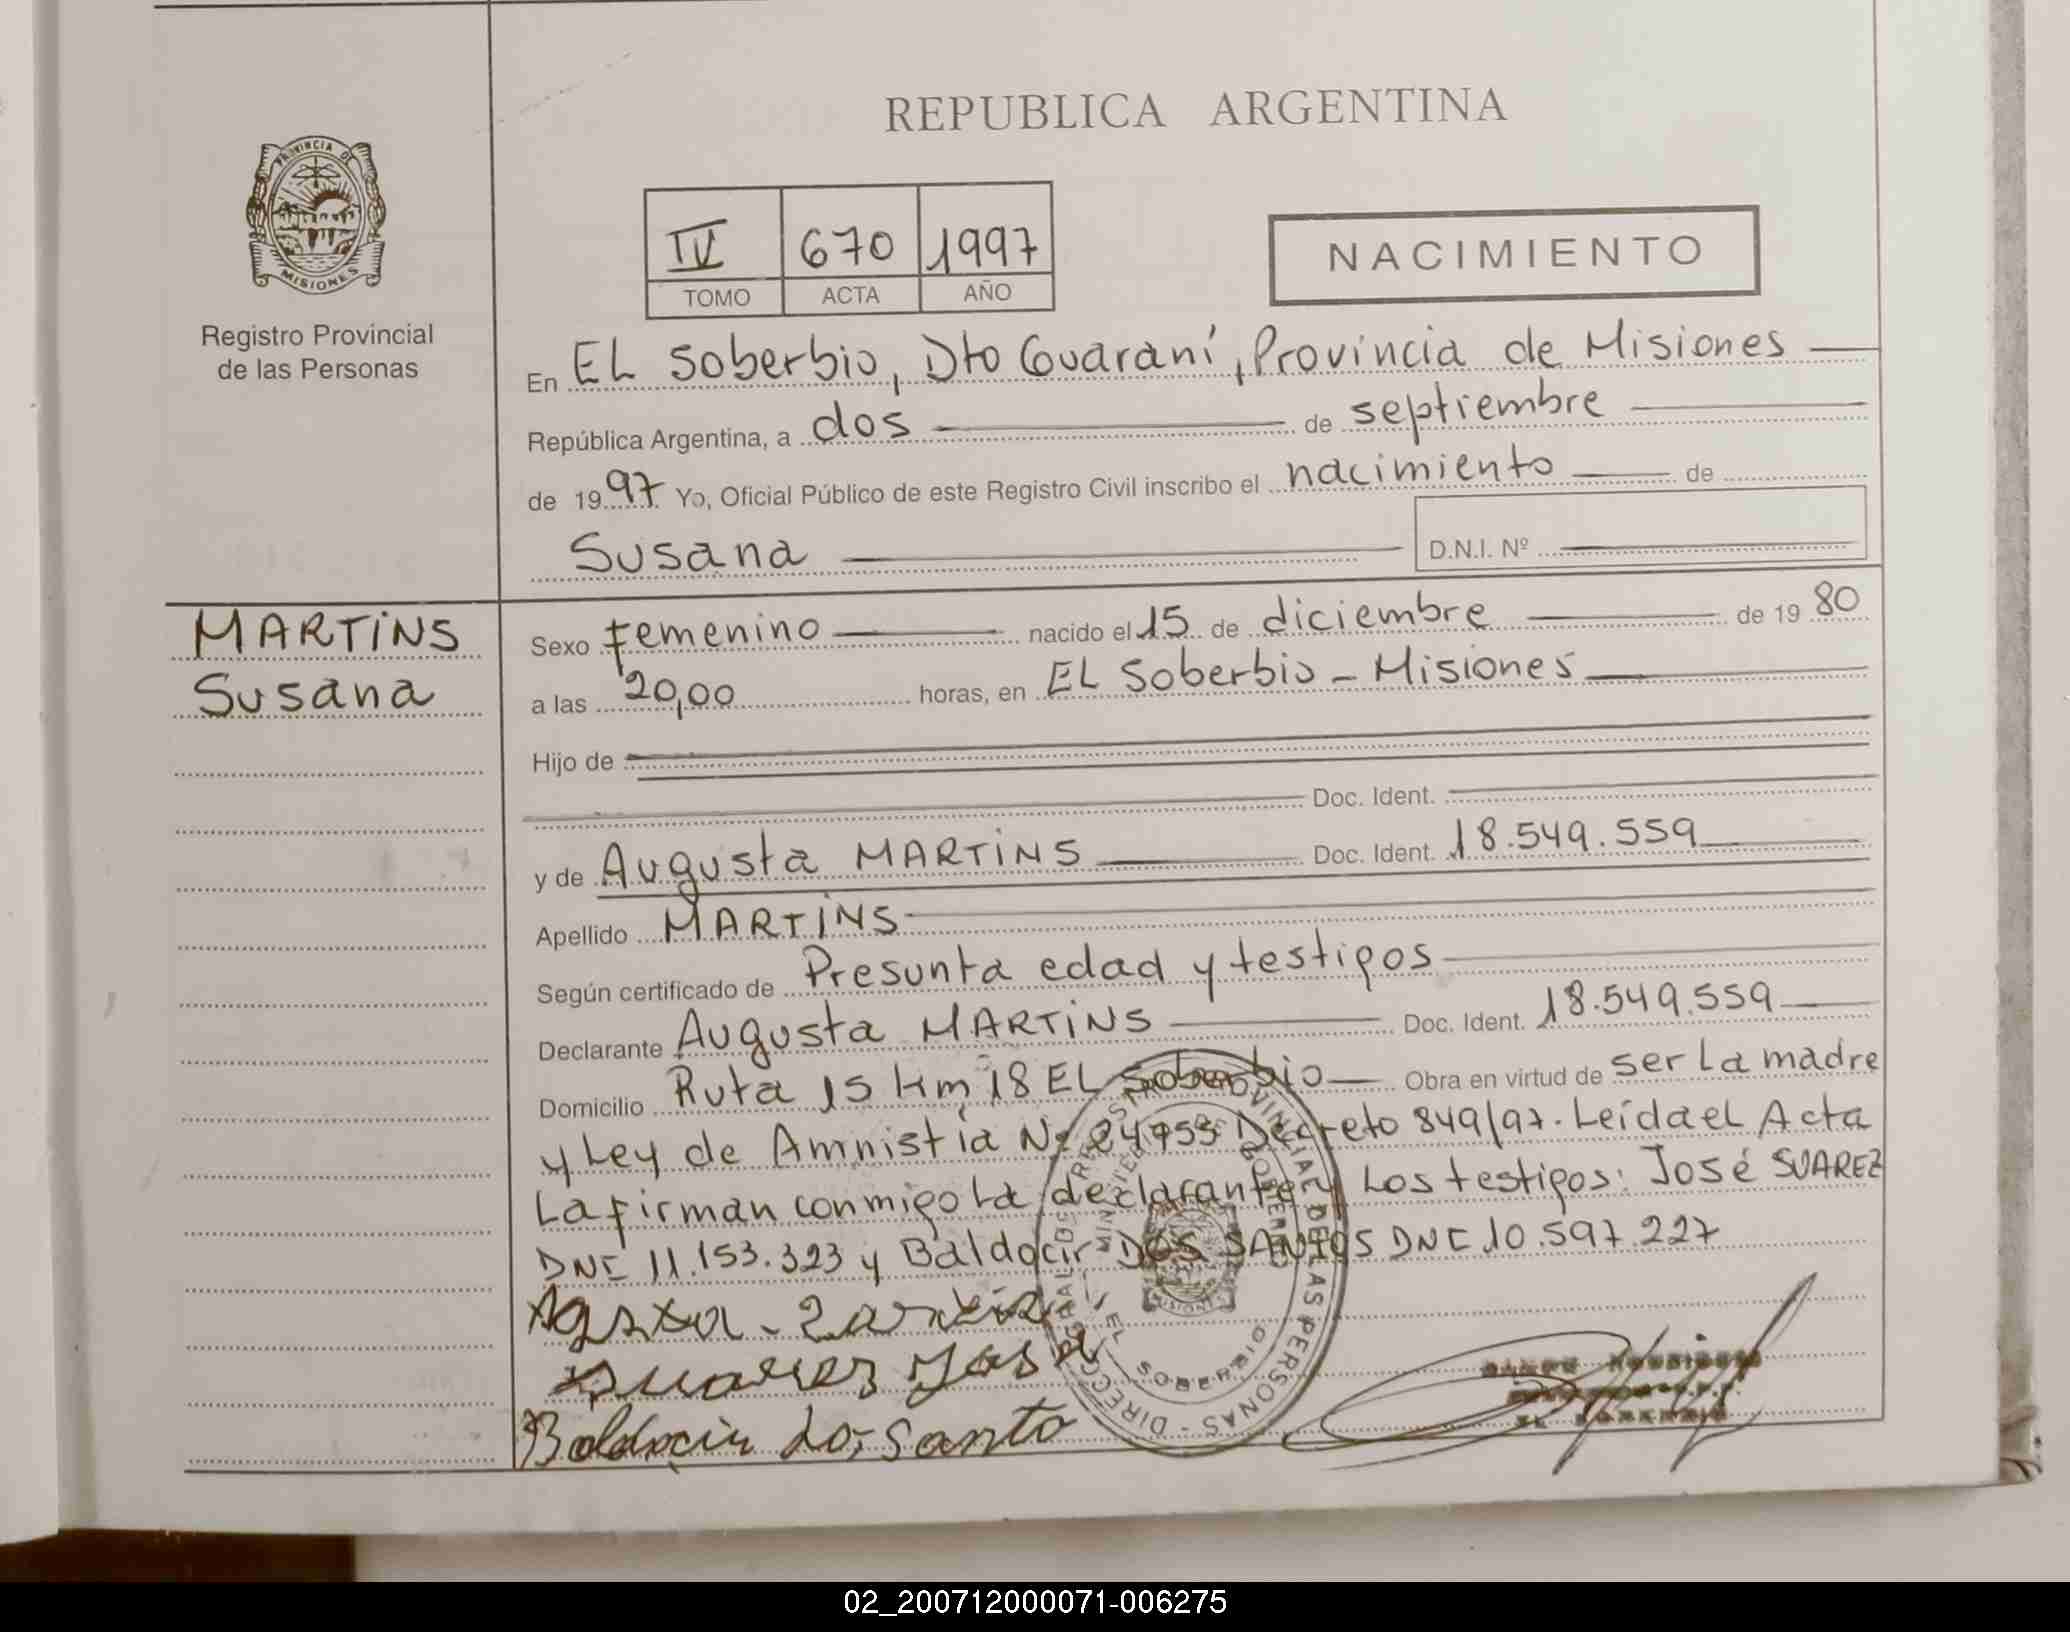 REPUBLICA ARGENTINA
PROVINCIA DE
MISIONES
Registro Provincial
de las Personas
IV 670 1997
TOMO ACTA AÑO
NACIMIENTO
En EL Soberbio, Dto Guaraní, Provincia de Misiones
República Argentina, a dos de septiembre
de 1997 Yo, Oficial Público de este Registro Civil inscribo el nacimiento de
Susana D.N.I. Nº
MARTINS
Susana
Sexo femenino nacido el 15 de diciembre de 1980
a las 20,00 horas, en EL Soberbio - Misiones
Hijo de
Doc. Ident.
y de Augusta MARTINS Doc. Ident. 18.549.559
Apellido MARTINS
Según certificado de Presunta edad y testigos
Declarante Augusta MARTINS Doc. Ident. 18.549.559
Domicilio Ruta 15 Km 18 EL Soberbio Obra en virtud de ser La madre
y Ley de Amnistía Nº 24755 Decreto 849/97. Leída el Acta
La firman conmigo La declarante y Los testigos: José SUAREZ
DNI 11.153.323 y Baldocir DOS SANTOS DNI 10.597.227
Suares José
Baldocir do, santo
DIRECCION GRAL. DE REGISTRO PROVINCIAL DE LAS PERSONAS
MINISTERIO DE GOBIERNO
EL SOBERBIO
MISIONES
02_200712000071-006275